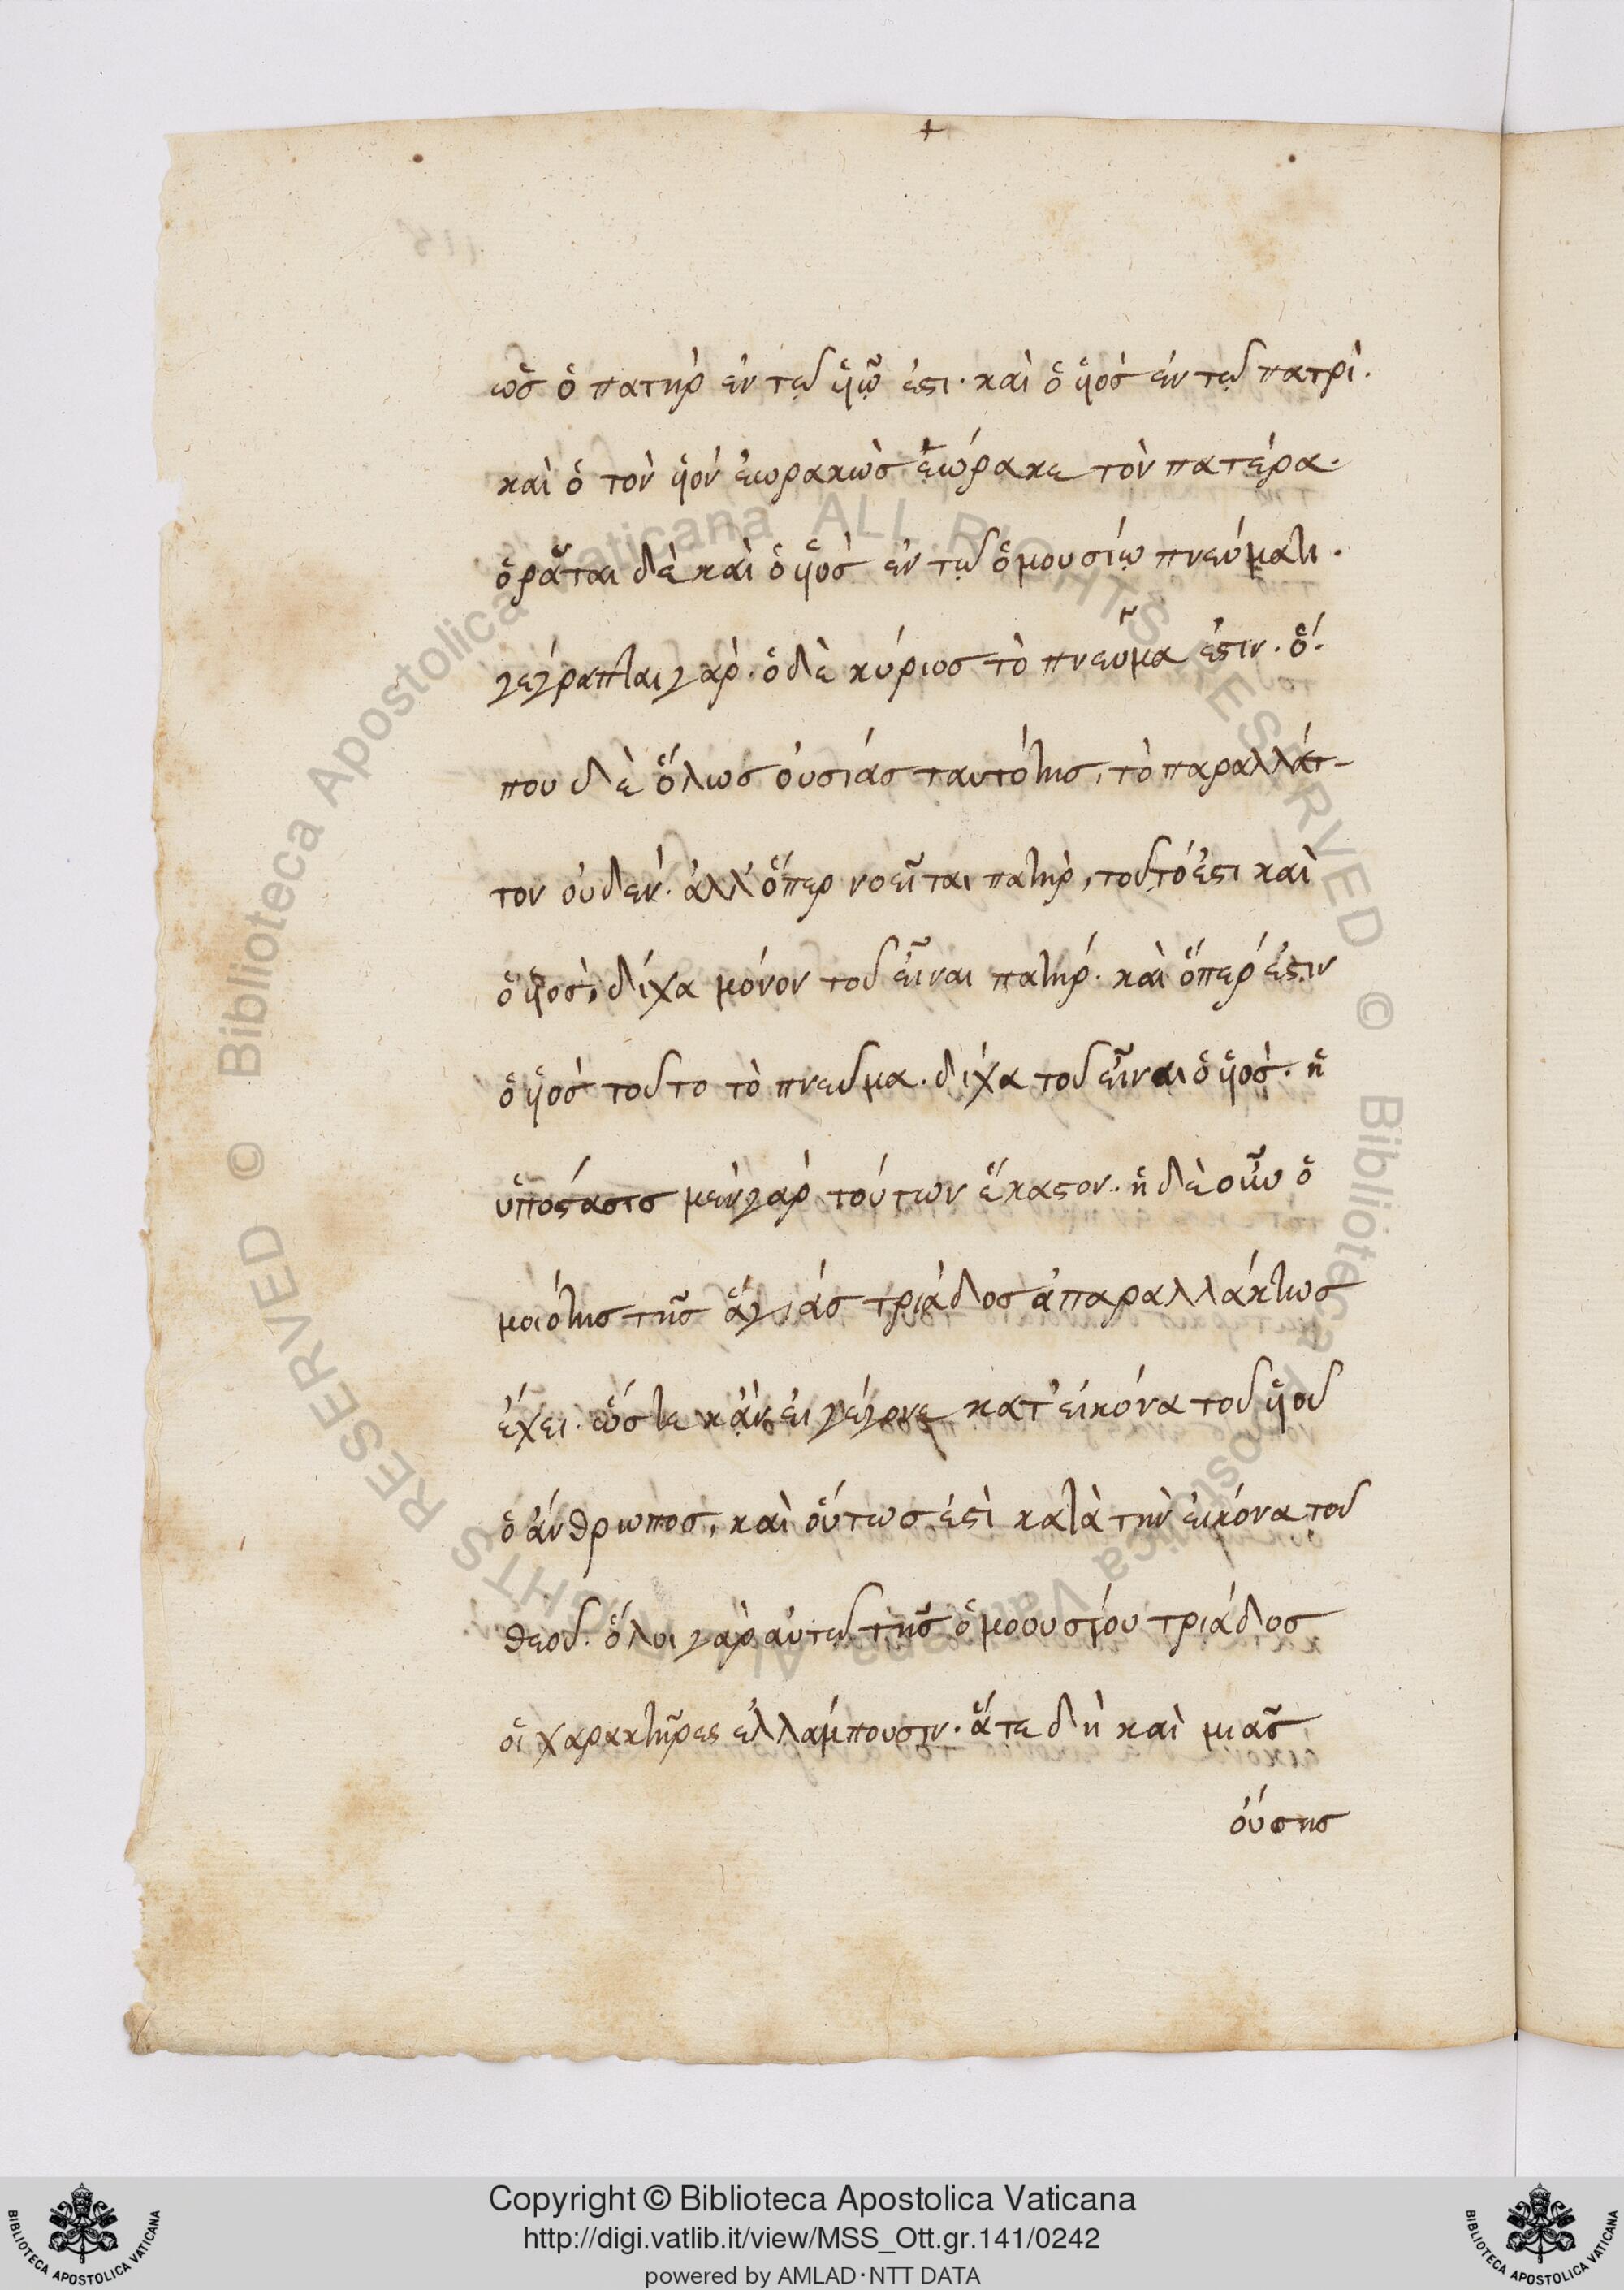 +
ὡς ὁ πατὴρ ἐν τῷ ὑϊῷ ἐστι· καὶ ὁ ὑϊὸς ἐν τῷ πατρὶ·
καὶ ὁ τὸν ὑϊὸν ἑωρακὼς ἑώρακε τὸν πατέρα·
ὁρᾶται δὲ καὶ ὁ ὑϊὸς ἐν τῷ ὁμουσίῳ πνεύματι·
γέγραπται γὰρ· ὁ δὲ κύριος τὸ πνεῦμα ἐστιν· ὅ-
που δὲ ὅλως οὐσίας ταυτότης, τὸ παραλλάτ-
τον οὐδέν· ἀλλ' ὅπερ νοεῖται πατὴρ, τοῦτό ἐστι καὶ
ὁ ὑϊὸς, δίχα μόνον τοῦ εἶναι πατήρ· καὶ ὅπερ ἐστιν
ὁ ὑϊὸς τοῦτο τὸ πνεῦμα· δίχα τοῦ εἶναι ὁ ὑϊὸς· ἡ
ὑπόστασις μὲν γὰρ τούτων ἕκαστον· ἡ δὲ οὖν ὁ
μοιότης τῆς ἁγίας τριάδος ἀπαραλλάκτως
ἔχει· ὥστε κἂν εἰ γέγονε κατ' εἰκόνα τοῦ ὑϊοῦ
ὁ ἄνθρωπος, καὶ οὕτως ἐστὶ κατὰ τὴν εἰκόνα τοῦ
θεοῦ· ὅλοι γὰρ αὐτῷ τῆς ὁμοουσίου τριάδος
οἱ χαρακτῆρες ἐλλάμπουσιν· ἅτε δὴ καὶ μιᾶς
οὔσης
Copyright © Biblioteca Apostolica Vaticana
http://digi.vatlib.it/view/MSS_Ott.gr.141/0242
powered by AMLAD·NTT DATA